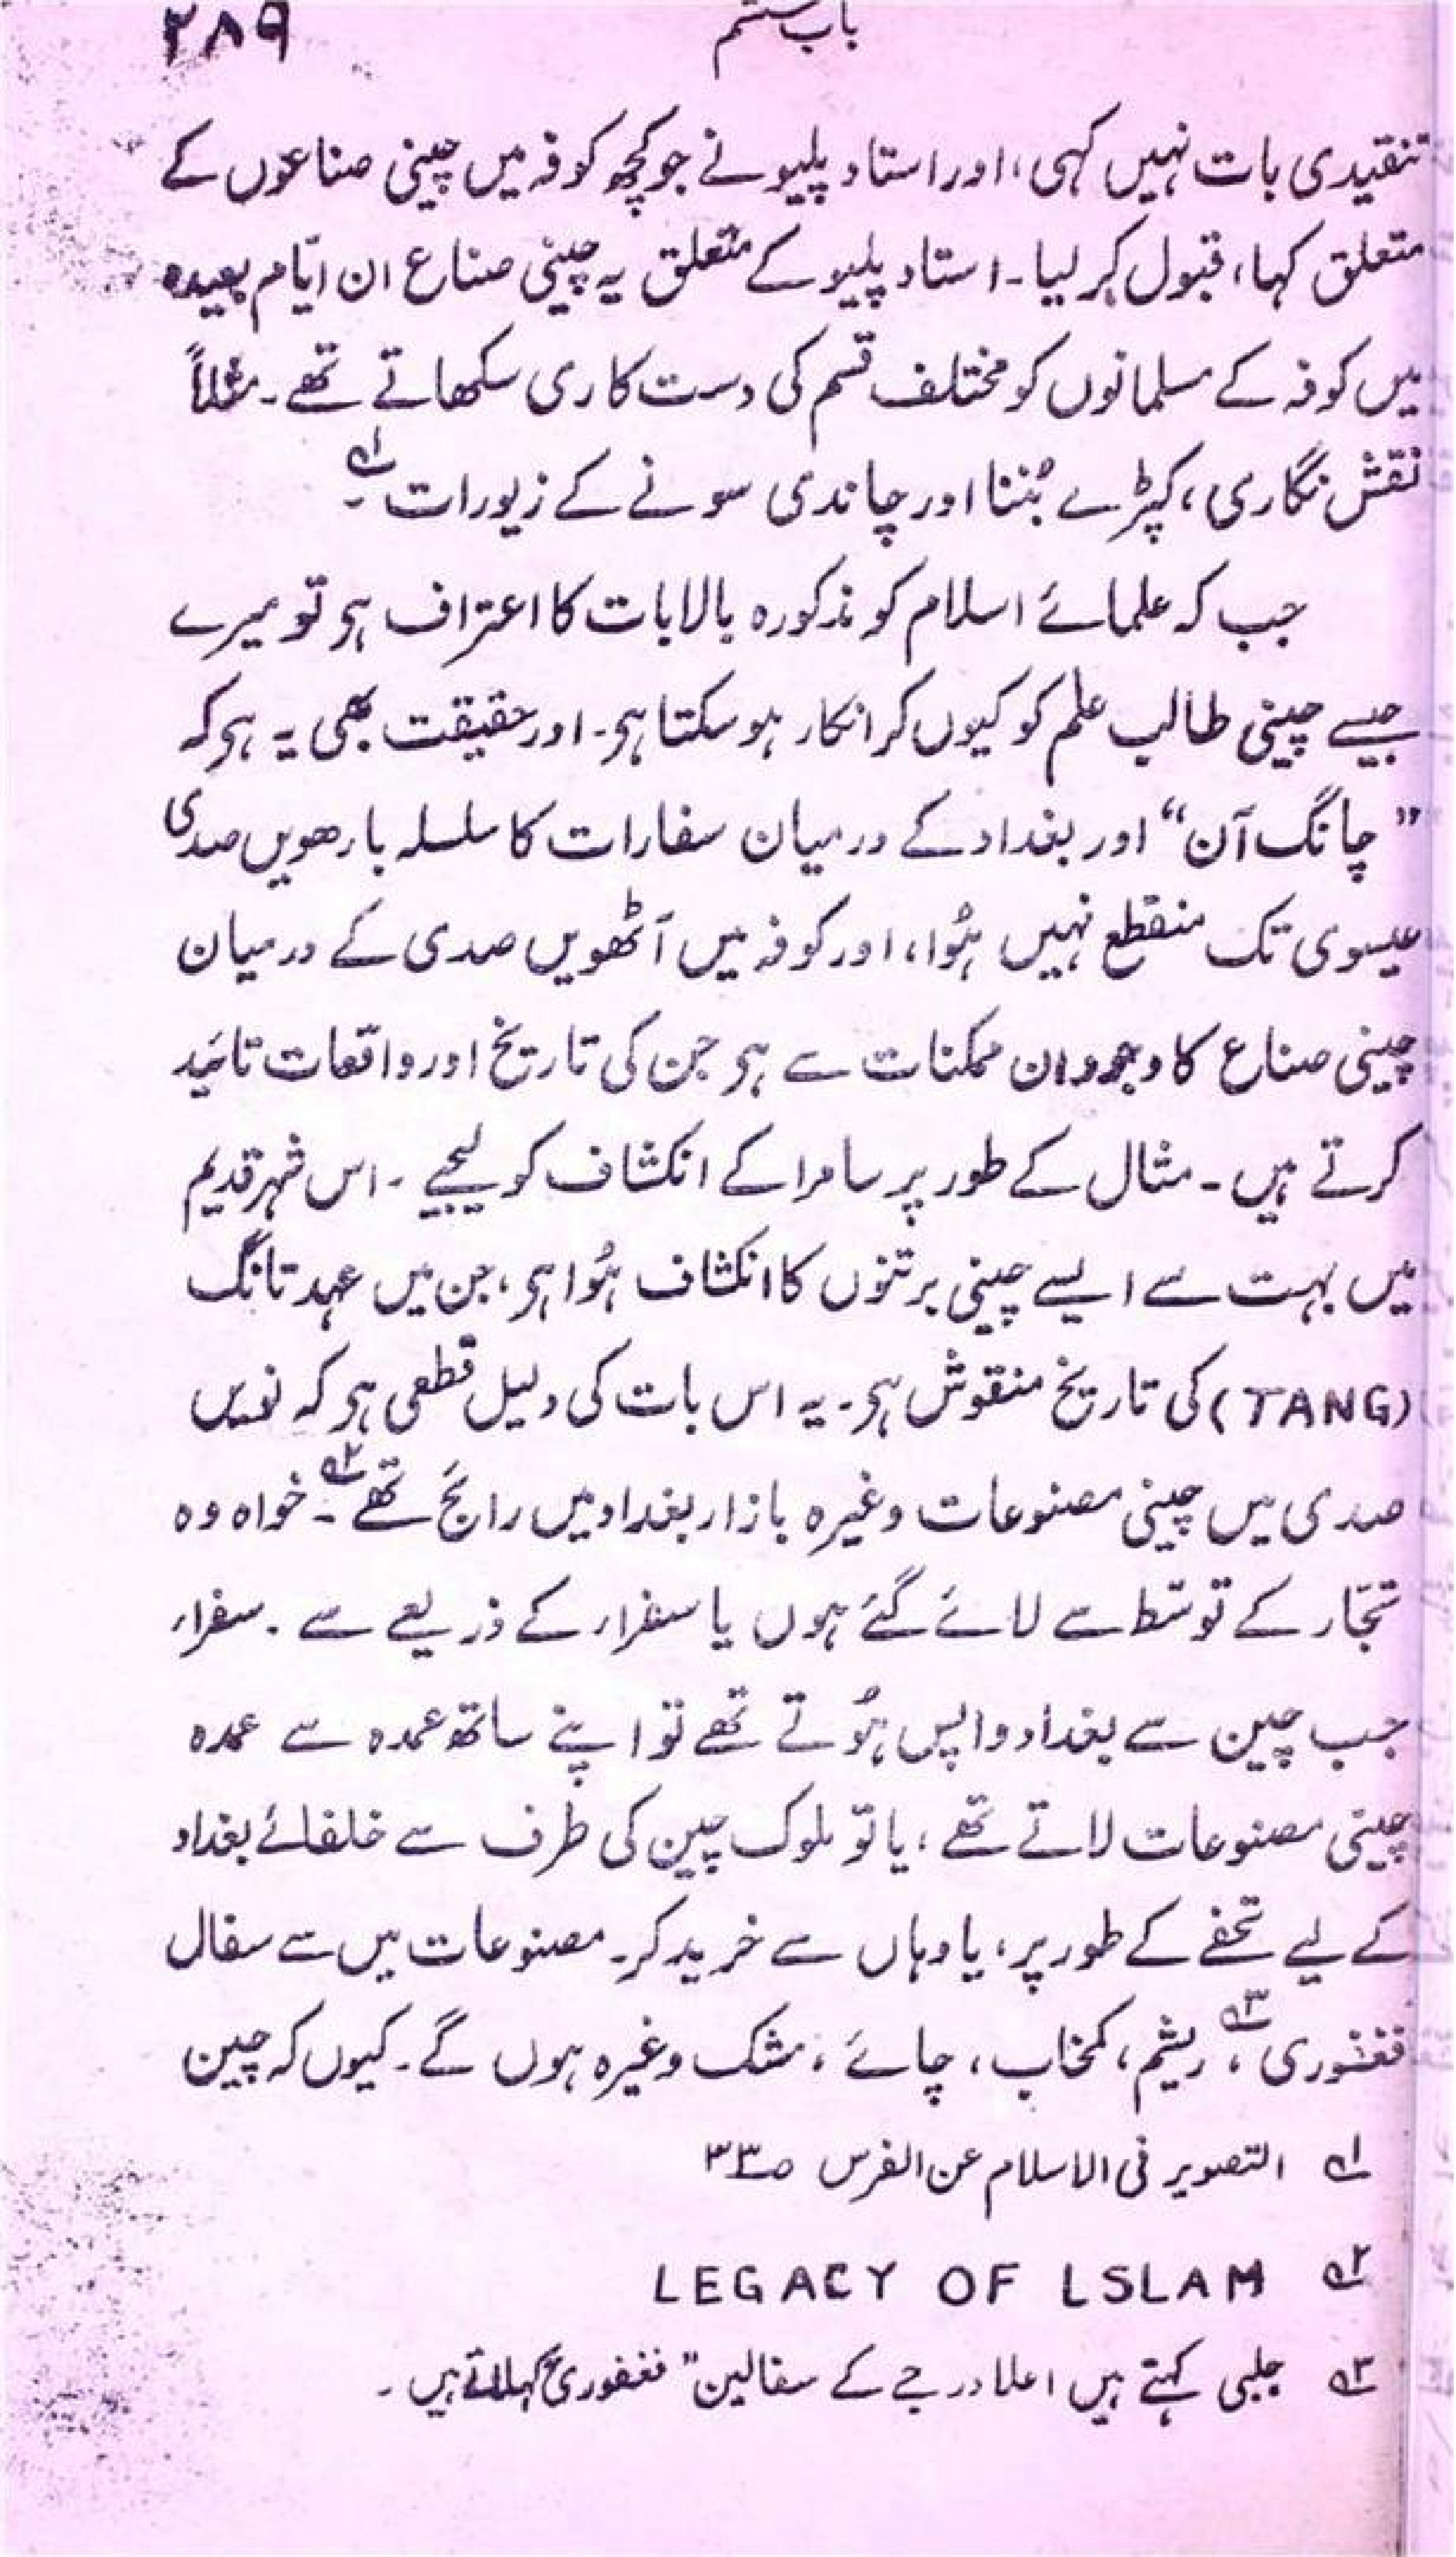 باب ششم ۲۸۹
تنقیدی بات نہیں کہی، اور استاد پلیو نے جو کچھ کوفہ میں چینی صناعوں کے
متعلق کہا، قبول کر لیا۔ استاد پلیو کے متعلق یہ چینی صناع ان ایّام بعیدہ
میں کوفہ کے مسلمانوں کو مختلف قسم کی دست کاری سکھاتے تھے۔ مثلاً
نقش نگاری، کپڑے بُننا اور چاندی سونے کے زیورات۱؎۔
جب کہ علمائے اسلام کو مذکورہ بالا بات کا اعتراف ہو تو میرے
جیسے چینی طالب علم کو کیوں کر انکار ہو سکتا ہو۔ اور حقیقت بھی یہ ہو کہ
”چانگ آن“ اور بغداد کے درمیان سفارات کا سلسلہ بارھویں صدی
عیسوی تک منقطع نہیں ہُوا، اور کوفہ میں آٹھویں صدی کے درمیان
چینی صناع کا وجود ان ممکنات سے ہو جن کی تاریخ اور واقعات تائید
کرتے ہیں۔ مثال کے طور پر سامرا کے انکشاف کو لیجیے۔ اس شہر قدیم
میں بہت سے ایسے چینی برتنوں کا انکشاف ہُوا ہو، جن میں عہد تانگ
(TANG) کی تاریخ منقوش ہو۔ یہ اس بات کی دلیل قطعی ہو کہ نویں
صدی میں چینی مصنوعات وغیرہ بازار بغداد میں رائج تھے۲؎۔ خواہ وہ
تجّار کے توسّط سے لائے گئے ہوں یا سفراء کے ذریعے سے۔ سفراء
جب چین سے بغداد واپس ہُوتے تھے تو اپنے ساتھ عمدہ سے عمدہ
چینی مصنوعات لاتے تھے؛ یا تو ملوک چین کی طرف سے خلفائے بغداد
کے لیے تحفے کے طور پر، یا وہاں سے خرید کر۔ مصنوعات میں سے سفال
فغفوری۳؎، ریشم، کمخاب، چائے، مشک وغیرہ ہوں گے۔ کیوں کہ چین
۱؎ التصویر فی الاسلام عن الفرس صـ۳۳
۲؎ LEGACY OF LSLAM
۳؎ جلبی کہتے ہیں اعلا درجے کے سفالین ”فغفوری“ کہلاتے ہیں۔